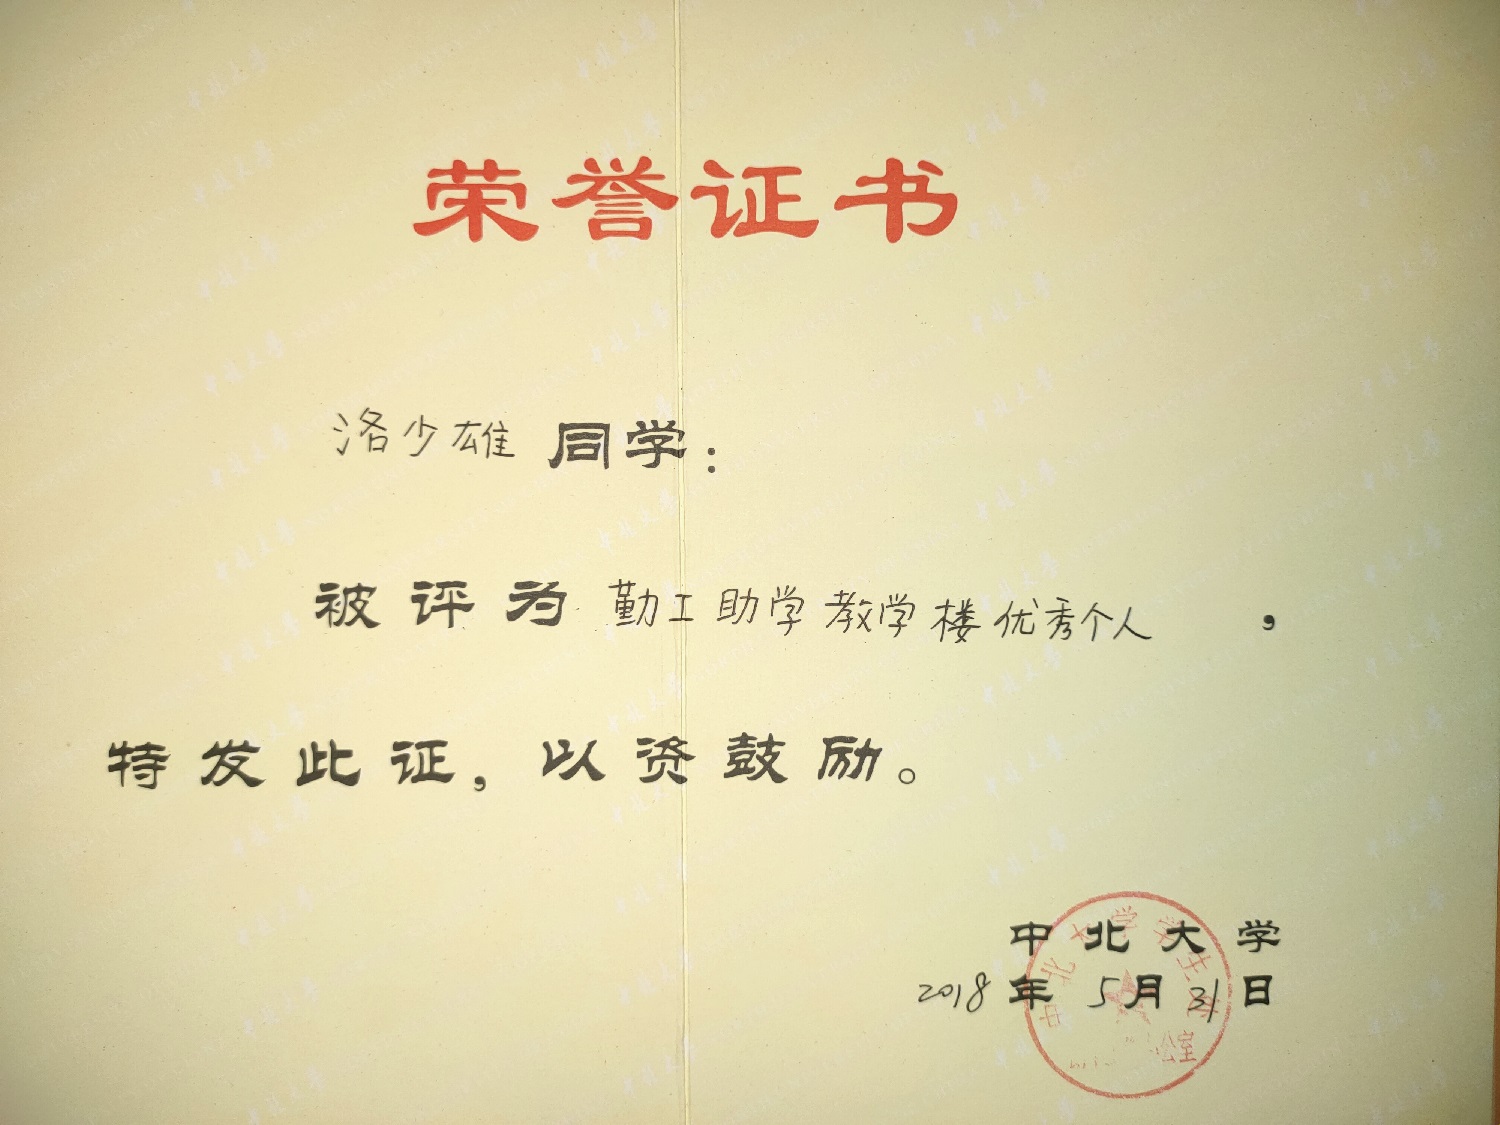 荣誉证书
洛少雄 同学：
被评为 勤工助学教学楼优秀个人，
特发此证，以资鼓励。
中北大学
2018年5月31日
中北大学学生
公室